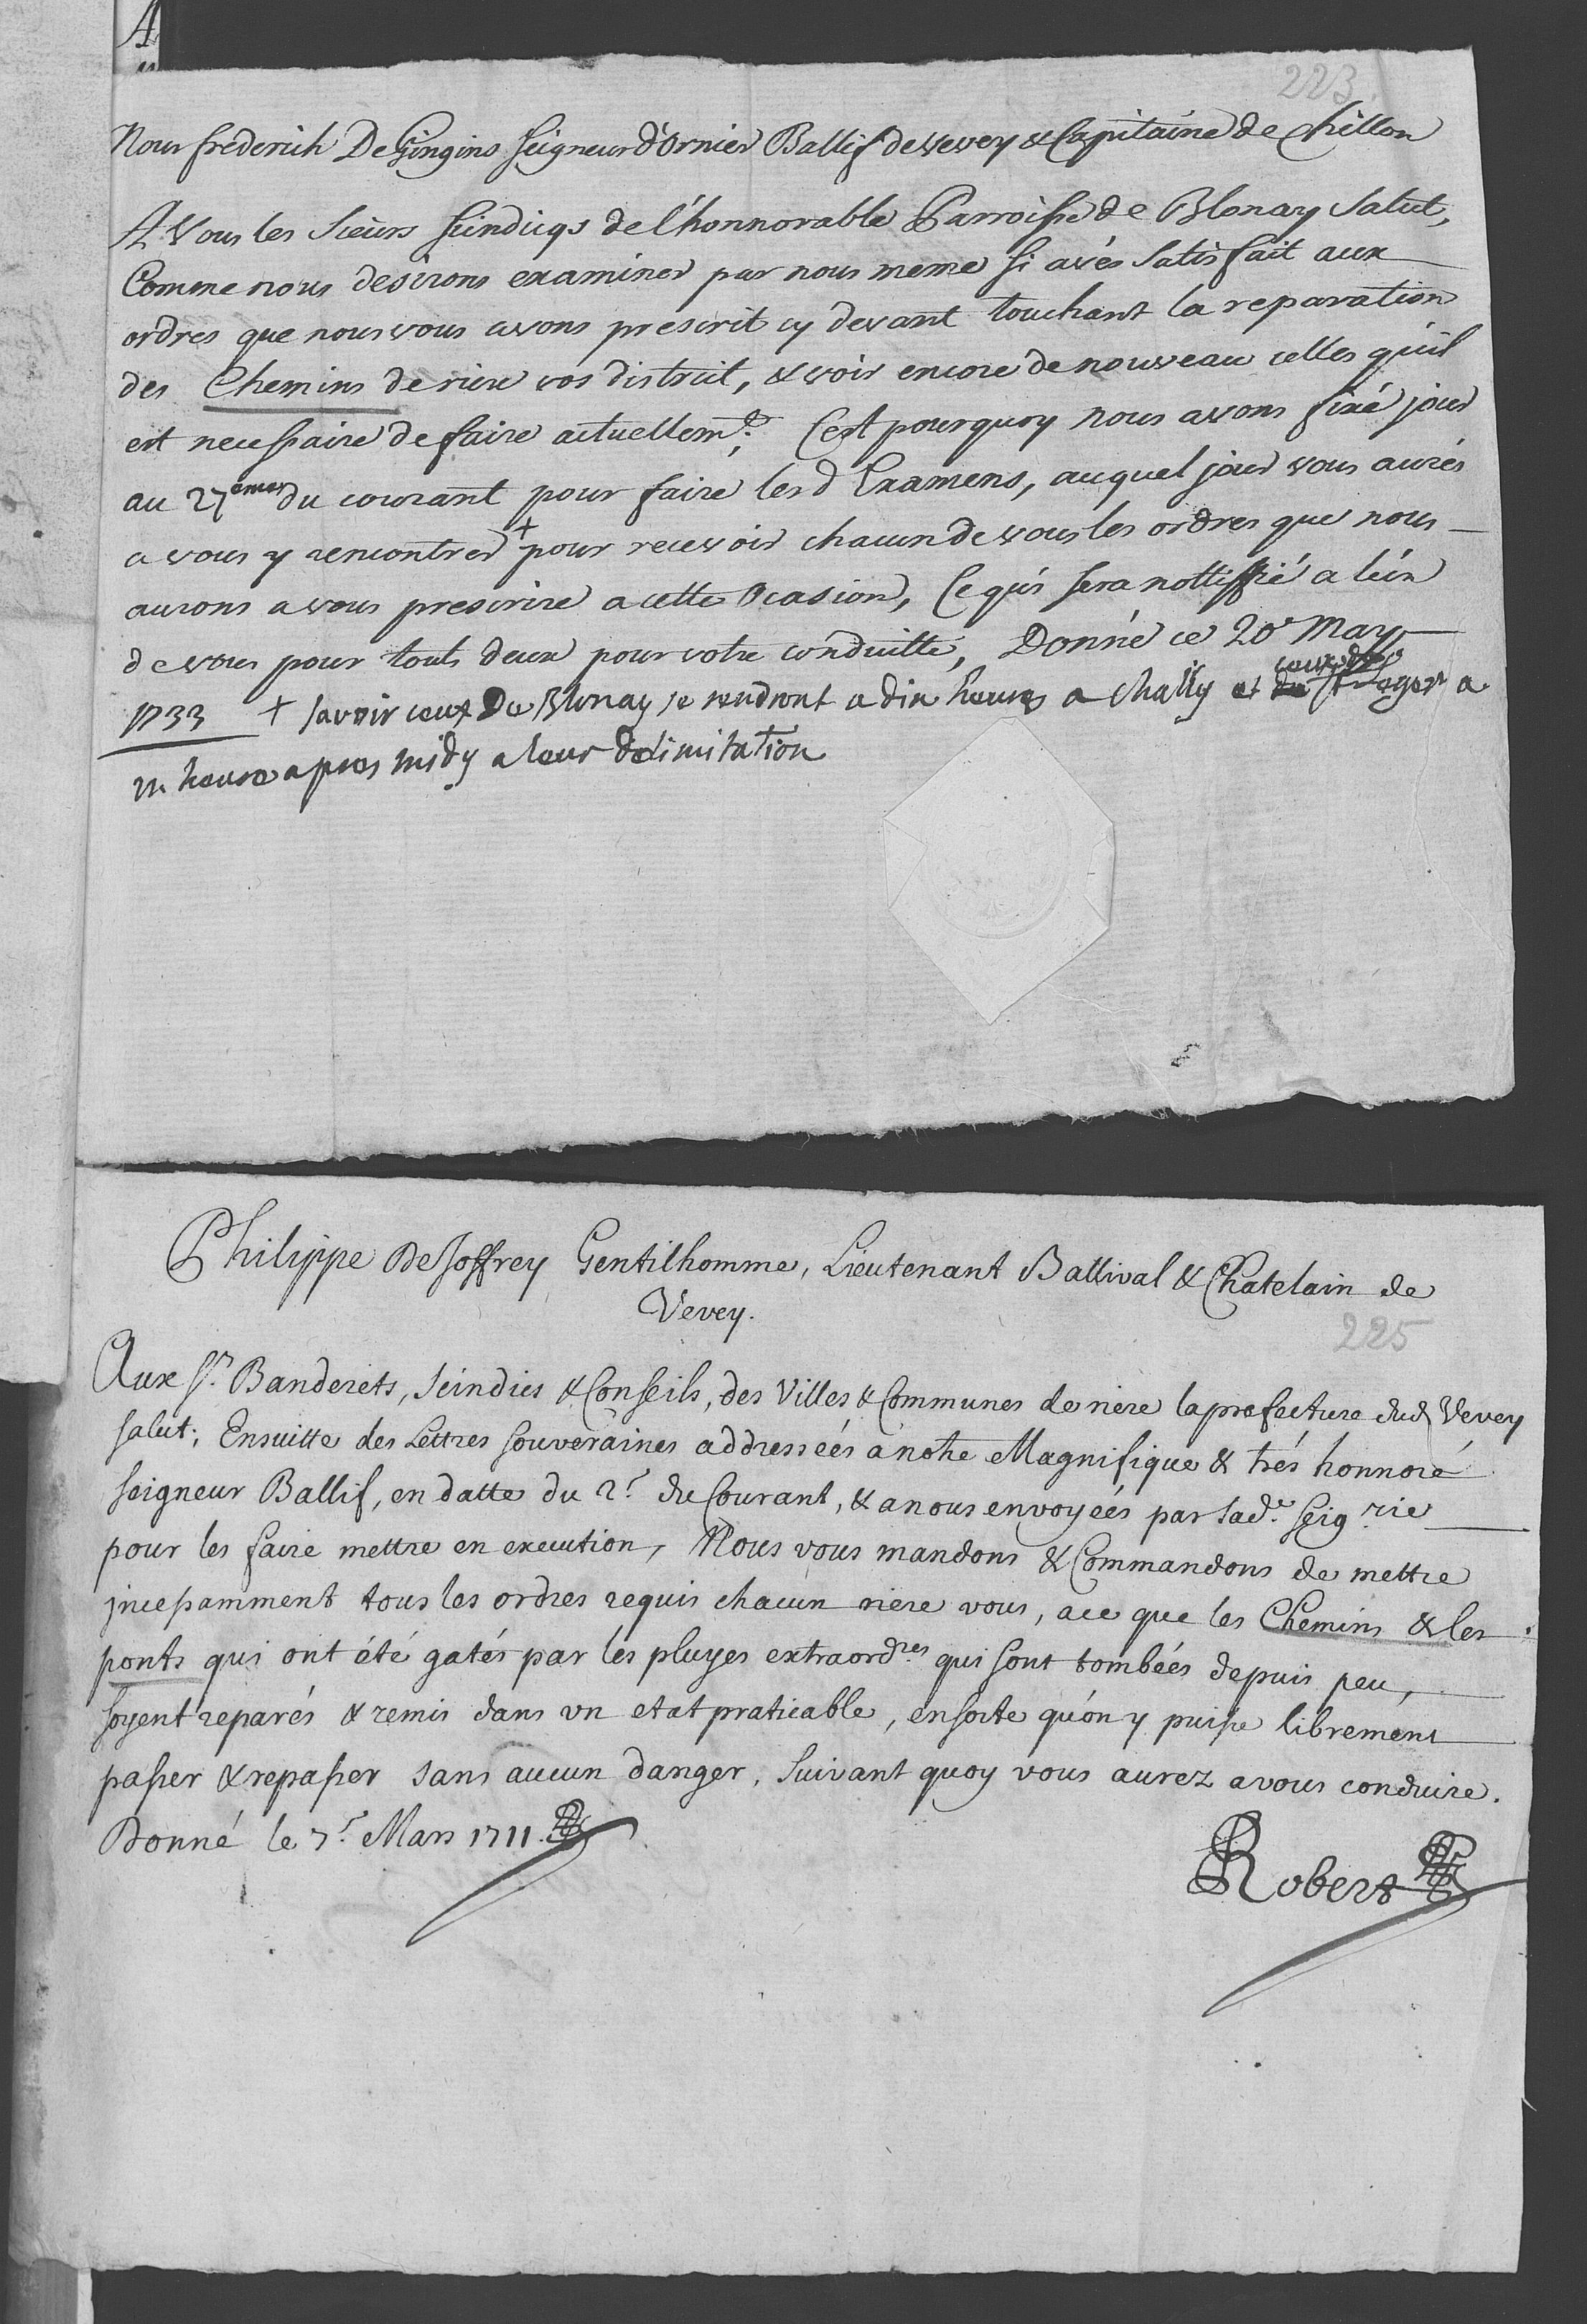 223.
Nous frederich De Gingins seigneur d'Ornier Ballif de vevey & Capitaine de Chillon
A Vous les Sieurs scindicqs de l'honnorable Parroisse de Blonay Salut,
Comme nous desirons examiner par nous meme si avés Satisfait aux
ordres que nous vous avons prescrit cy devant touchant la reparation
des Chemins deriere vos distruit, & voir encore de nouveau celles qu'il
est necessaire de faire actuellemt: C'est pourquoy nous avons fixé jour
au 27emes du courant pour faire lesd Examens, auquel jour vous aurés
a vous y rencontrer + pour recevoir chacun de vous les ordres que nous
aurons a vous prescrire a cette Ocasion, Ce qui sera nottiffié a l'ün
de vous pour touts deux pour votre conduitte, Donné ce 20e May
1733 + savoir ceux De Blonay se rendront a dix heures a Chailly et ceux de St Leger a
un heure apres midy a leur delimitation
Philippe DeJoffrey Gentilhomme, Lieutenant Ballival & Chatelain de
Vevey.
225
Aux Srs. Banderets, Seindics & Conseils, des Villes & Communes de riere la prefecture dud Vevey
salut; Ensuitte des Lettres souveraines addresseés à notre Magnifique & trés honnoré
seigneur Ballif, en datte du 2e. du Courant, & a nous envoyeés par sade. Seigrie
pour les faire mettre en execution, Nous vous mandons & Commandons de mettre
incessamment tous les ordres requis chacun riere vous, ace que les Chemins & les
ponts qui ont été gatés par les pluyes extraordres qui sont tombées depuis peu,
soyent reparés & remis dans vn etat praticable, ensorte qu'on y puisse librement
passer & repasser sans aucun danger, Suivant quoy vous aurez avous conduire.
Donné le 7e. Mars 1711.
Robert